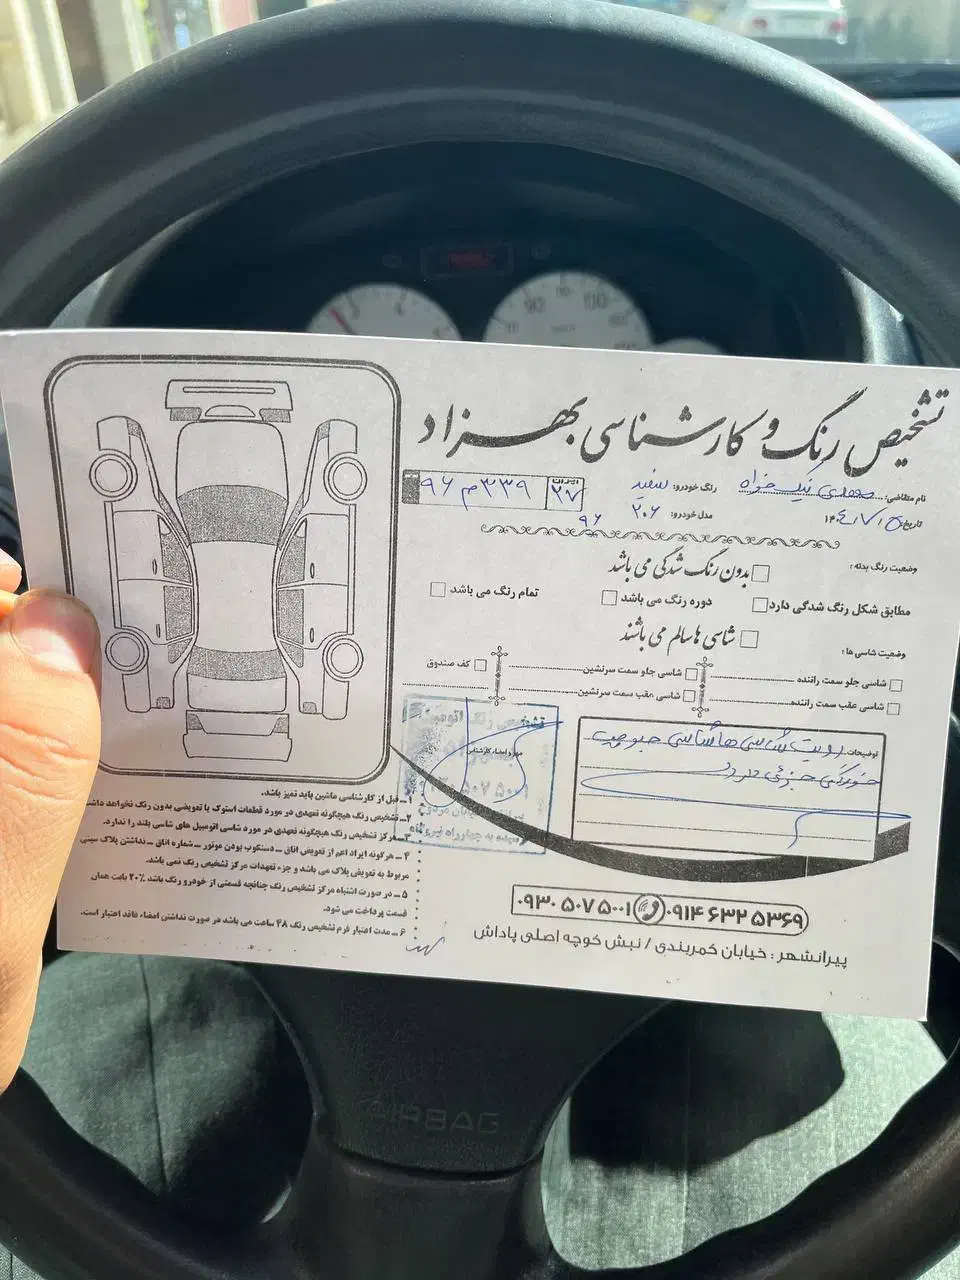 تشخیص رنگ و کارشناسی بهزاد
نام متقاضی: مهدی نیک خواه رنگ خودرو: سفید
ایران ۲۷ ۳۳۹ م ۹۶
تاریخ: ۱۴۰۴/۷/۱۵ مدل خودرو: ۲۰۶ ۹۶
وضعیت رنگ بدنه:
بدون رنگ شدگی می باشد
مطابق شکل رنگ شدگی دارد دوره رنگ می باشد تمام رنگ می باشد
وضعیت شاسی ها:
شاسی ها سالم می باشند
شاسی جلو سمت راننده شاسی جلو سمت سرنشین کف صندوق
شاسی عقب سمت راننده شاسی عقب سمت سرنشین
توضیحات: رویت شاسی ها شاسی جلو
خوردگی جزئی دارد
مهر و امضاء کارشناسی
تشخیص رنگ اتومبیل
۱ــ قبل از کارشناسی ماشین باید تمیز باشد.
۲ــ تشخیص رنگ هیچگونه تعهدی در مورد قطعات استوک یا تعویضی بدون رنگ نخواهد داشت
۳ــ مرکز تشخیص رنگ هیچگونه تعهدی در مورد شاسی اتومبیل های شاسی بلند را ندارد.
۴ ــ هرگونه ایراد اعم از تعویض اتاق ــ دستکوب بودن موتور ــ شماره اتاق ــ نداشتن پلاک سینی
مربوط به تعویض پلاک می باشد و جزء تعهدات مرکز تشخیص رنگ نمی باشد.
۵ ــ در صورت اشتباه مرکز تشخیص رنگ چنانچه قسمتی از خودرو رنگ باشد ۲۰٪ بابت همان
قسمت پرداخت می شود.
۶ ــ مدت اعتبار فرم تشخیص رنگ ۴۸ ساعت می باشد در صورت نداشتن امضاء فاقد اعتبار است.
۰۹۱۴ ۶۳۲ ۵۳۶۹ ۰۹۳۰ ۵۰۷ ۵۰۰۱
پیرانشهر : خیابان کمربندی / نبش کوچه اصلی پاداش
AIRBAG